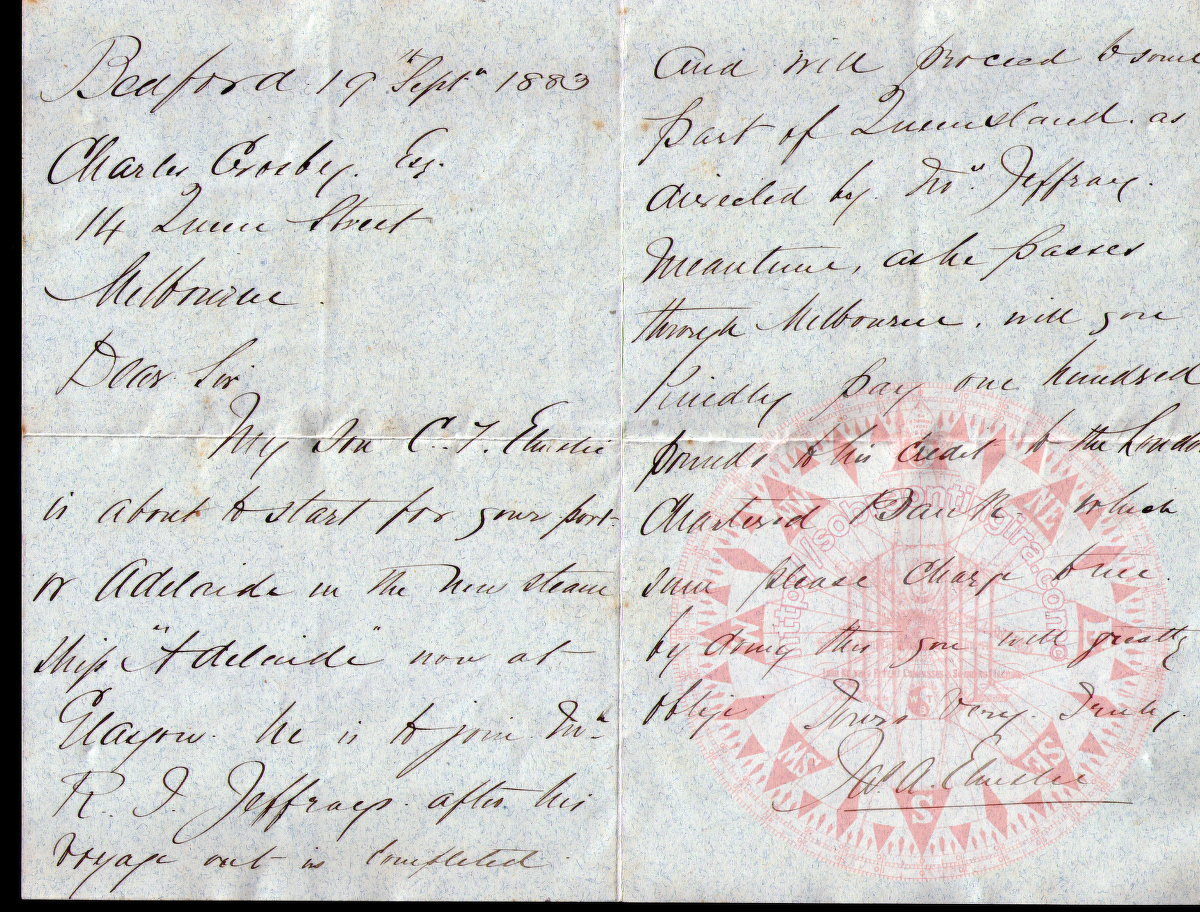 Bedford 19th Septr 1883
Charles Crosby. Esq.
14 Queen Street
Melbourne.
Dear Sir
My son C. F. Elmslie
is about to start for your port
or Adelaide in the new steam
ship "Adelaide" now at
Glasgow. he is to join Mr
R. J. Jeffrays. after his
voyage out is completed.
And will proceed to some
part of Queensland. as
directed by. Mr. Jeffray.
Meantime, as he passes
through Melbourne. will you
kindly pay one hundred
pounds to his credit to the London
Chartered Bank. which
sum please charge to me.
by doing this you will greatly
oblige Yours Very. Truly.
Jas. A. Elmslie
http://sobrenontigaira.com
NE
W
E
MS
ES
S